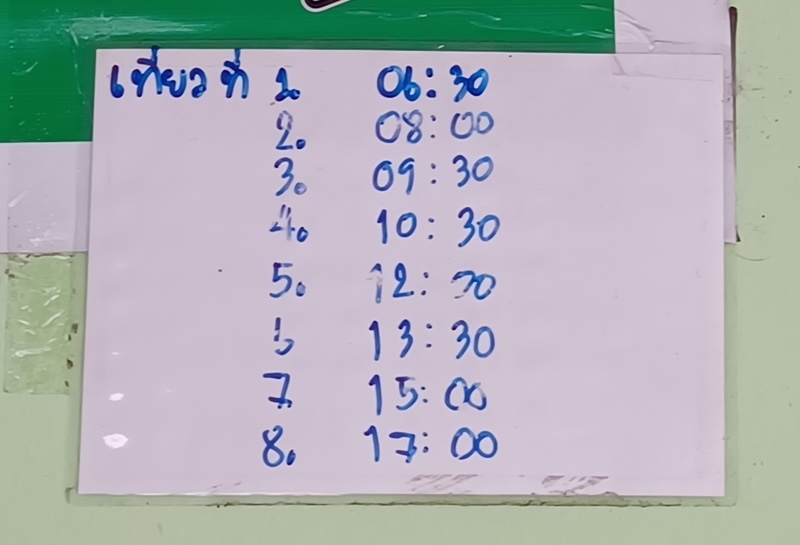 เที่ยวที่ 1. 06:30
2. 08:00
3. 09:30
4. 10:30
5. 12:30
6 13:30
7 15:00
8. 17:00